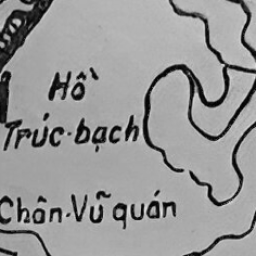 Hồ
Trúc-bạch
Chân-Vũ quán